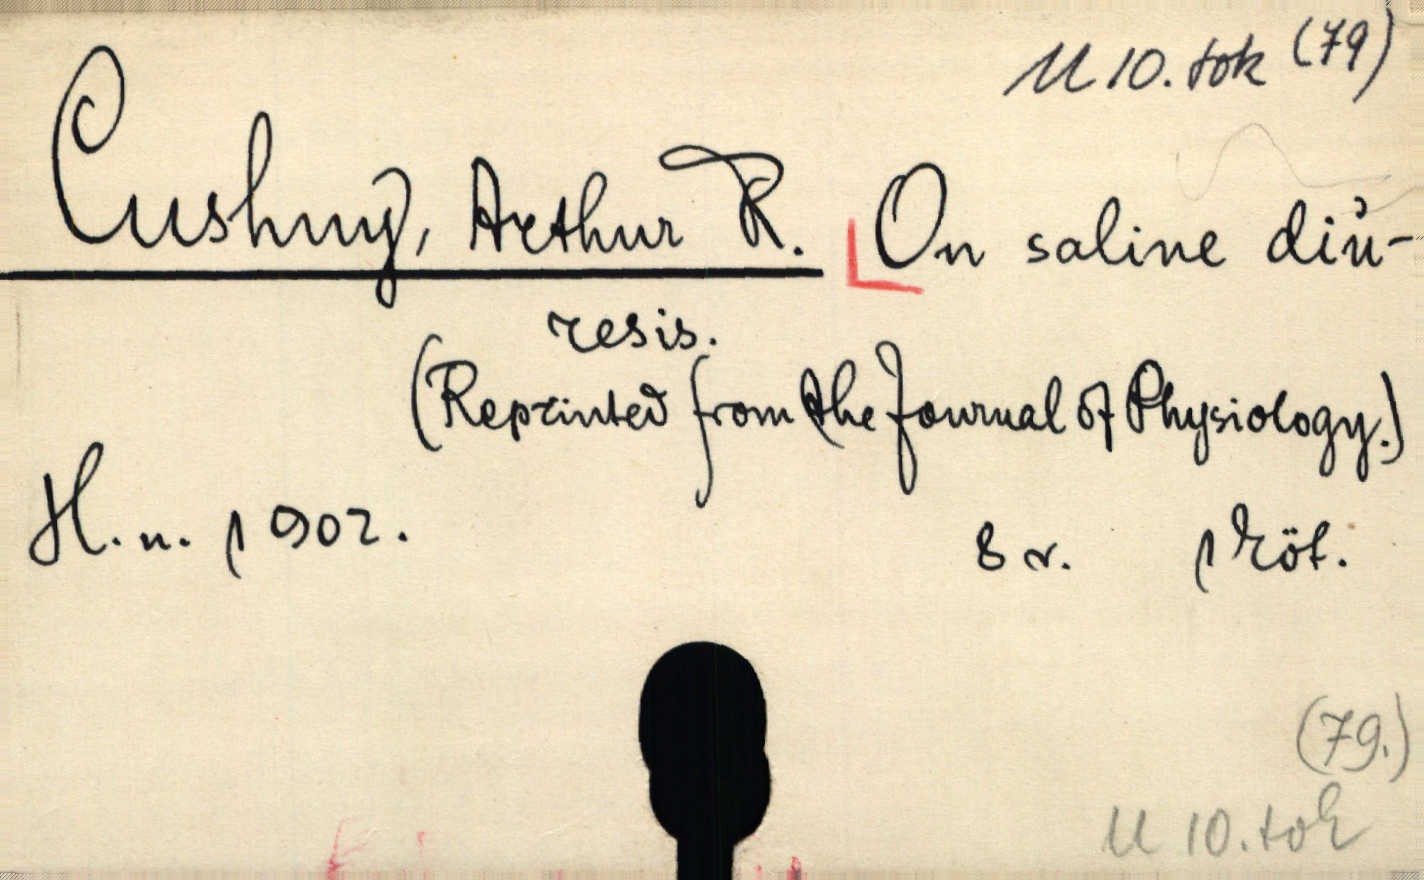 U 10. tok (79)
Cushny, Arthur R. On saline diu-
resis.
(Reprinted from the Journal of Physiology.)
H. n. 1902. 8 r. 1 köt.
(79.)
U 10. tok